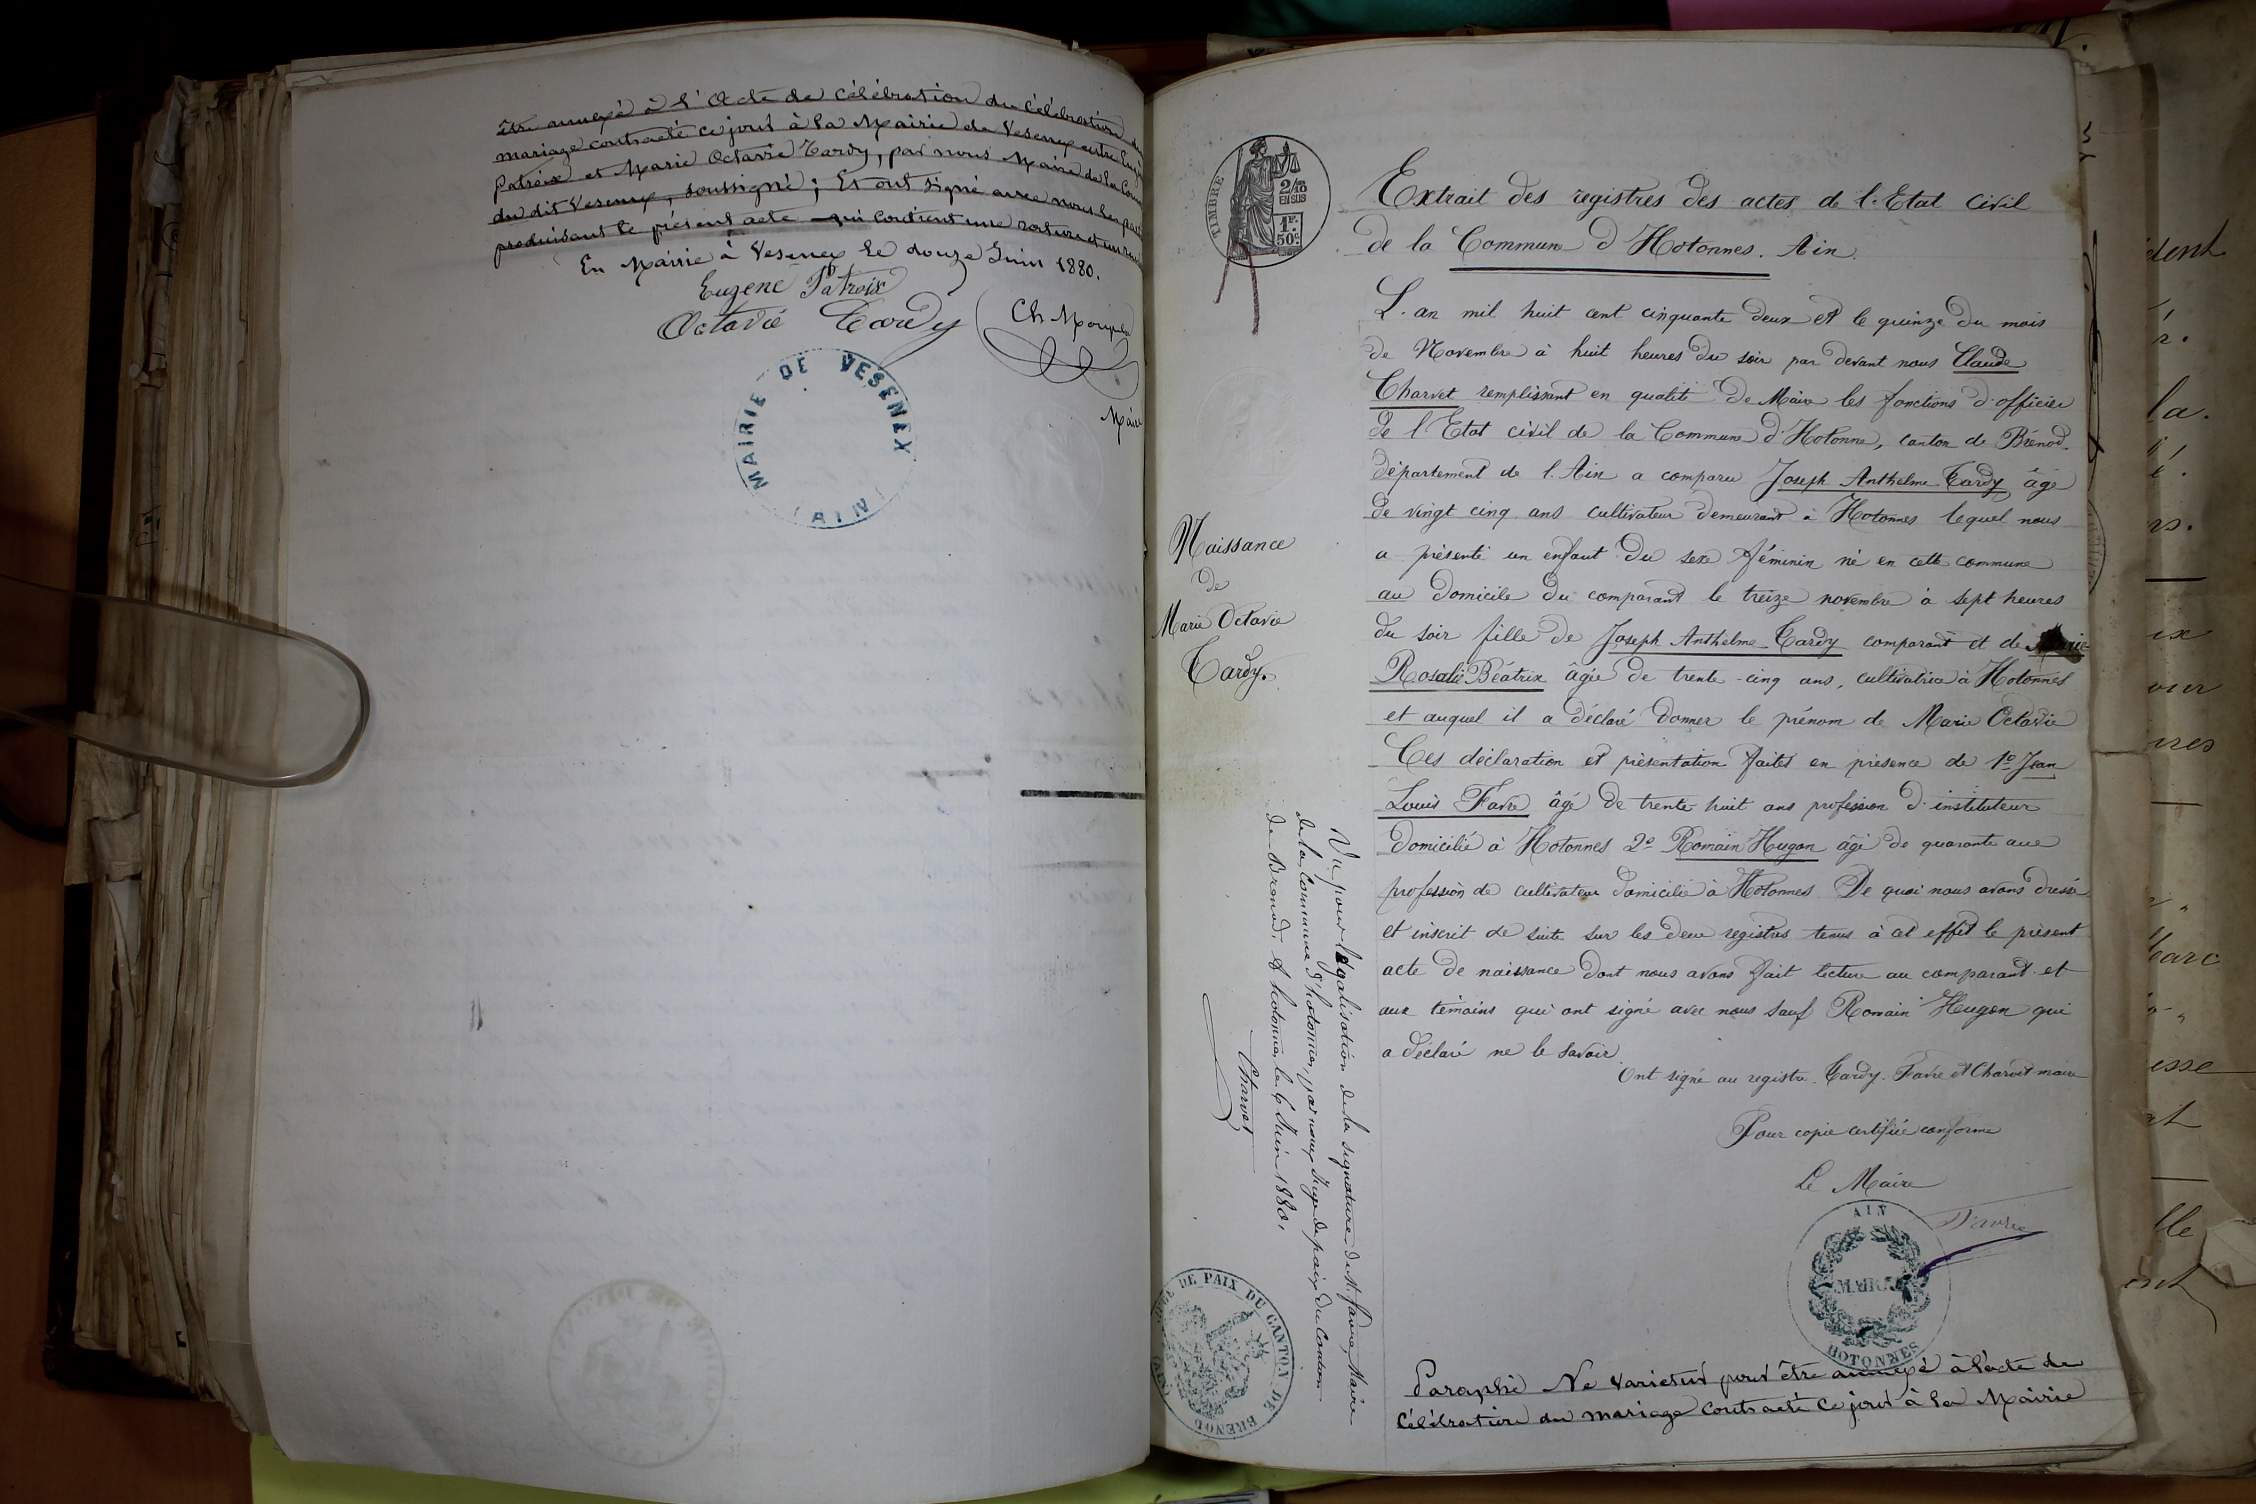 être annexé à l'Acte de Célébration du Célébration du
mariage contracté ce jour à la Mairie de Vesenex entre Eugène
Patroix et Marie Octavie Tardy, par nous Maire de la Com
du dit Vesenex, soussigné ; Et ont signé avec nous les par
produisant le présent acte qui contient une rature et un
En Mairie à Vesenex le douze Juin 1880.
Eugene Patroix
Octavie Tardy
Ch
Maire
MAIRIE DE VESENEX
(AIN)
TIMBRE
2/10
EN SUS
1F.
50c
Extrait des registres des actes de l'Etat Civil
de la Commune d'Hotonnes. Ain.
L'an mil huit cent cinquante deux et le quinze du mois
de Novembre à huit heures du soir par devant nous Claude
Charvet remplissant en qualité de Maire les fonctions d'officier
de l'Etat civil de la Commune d'Hotonne, canton de Brénod
département de l'Ain a comparu Joseph Anthelme Tardy âgé
de vingt cinq ans cultivateur demeurant à Hotonnes lequel nous
a présenté un enfant du sexe féminin né en cette commune
au domicile du comparant le treize novembre à sept heures
du soir fille de Joseph Anthelme Tardy comparant et de Marie
Rosalie Béatrix âgée de trente-cinq ans, cultivatrice à Hotonnes
et auquel il a déclaré donner le prénom de Marie Octavie
Ces déclaration et présentation faites en présence de 1o Jean
Louis Favre âgé de trente huit ans profession d'instituteur
domicilié à Hotonnes 2o Romain Hugon âgé de quarante ans
profession de cultivateur domicilié à Hotonnes De quoi nous avons dressé
et inscrit de suite sur les deux registres tenus à cet effet le présent
acte de naissance dont nous avons fait lecture au comparant et
aux témoins qui ont signé avec nous sauf Romain Hugon qui
a déclaré ne le savoir
Ont signé au registre. Tardy. Favre et Charvet maire
Pour copie certifiée conforme
Le Maire
Favre
AIN
MAIRIE
HOTONNES
Paraphé Ne Varietur pour être annexé à l'acte de
Célébration du mariage contracté ce jour à la Mairie
Naissance
de
Marie Octavie
Tardy.
Vu pour légalisation de la signature de M. Favre, Maire
de la Commune d'hotonnes, par nous Juge de paix du Canton
de Brenod, à hotonnes, le 6 Juin 1880.
Charvet
DE PAIX DU CANTON DE BRENOD
(AIN)
ident
la.
rs.
ix
our
ures
esse
lle
ent